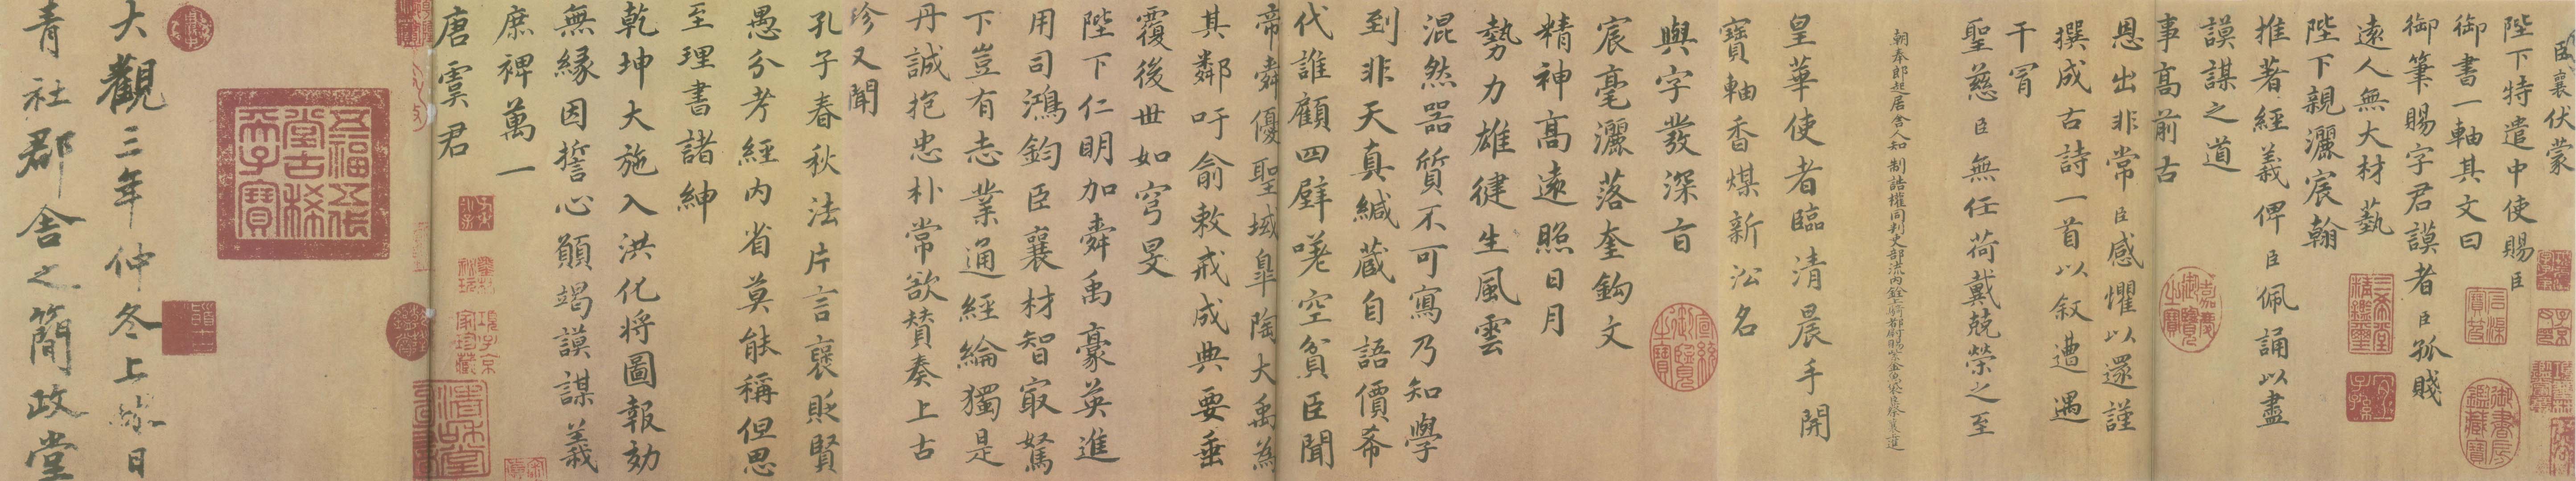 臣襄伏蒙
陛下特遣中使賜臣
御書一軸其文曰
御筆賜字君謨者臣孤賤
遠人無大材藝
陛下親灑宸翰
推著經義俾臣佩誦以盡
謨謀之道
事高前古
恩出非常臣感懼以還謹
撰成古詩一首以叙遭遇
干冒
聖慈臣無任荷戴兢榮之至
朝奉郎起居舍人知制誥權同判吏部流內銓上騎都尉賜紫金魚袋臣蔡襄進
皇華使者臨清晨手開
寶軸香煤新沿名
與字發深旨
宸毫灑落奎鈎文
精神高遠照日月
勢力雄徤生風雲
混然器質不可寫乃知學
到非天真緘藏自語價希
代誰顧四壁嘆空貧臣聞
帝舜優聖域皐陶大禹為
其鄰吁俞敕戒成典要垂
覆後世如穹旻
陛下仁明加舜禹豪英進
用司鴻鈞臣襄材智㝡駑
下豈有志業通經綸獨是
丹誠抱忠朴常欲賛奏上古
珍又聞
孔子春秋法片言襃貶賢
愚分考經內省莫能稱但思
至理書諸紳
乾坤大施入洪化将圖報効
無緣因誓心願竭謨謀義
庶裨萬一
唐虞君
五福五代
堂古稀
天子寶
大觀三年仲冬上
日
青社郡舍之簡政堂